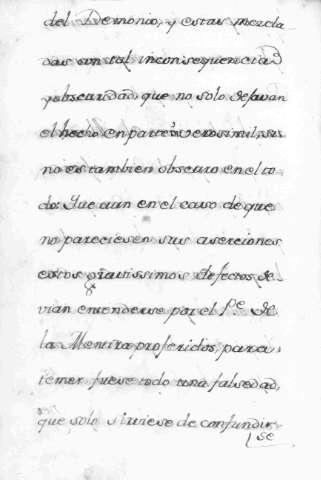 del Demonio, y estas mezcla
das con tal inconsequencia
y obscuridad, que no solo dejavan
el hecho en parte verosimil, si
no es tambien obscuro en el to
do: Que aun en el caso de que
no pareciesen sus aserciones
estos gravissimos defectos de
vian entenderse por el Pe. de
la Mentira proferidos, para
temer fuese todo una falsedad,
que solo sirviese de confundir
se